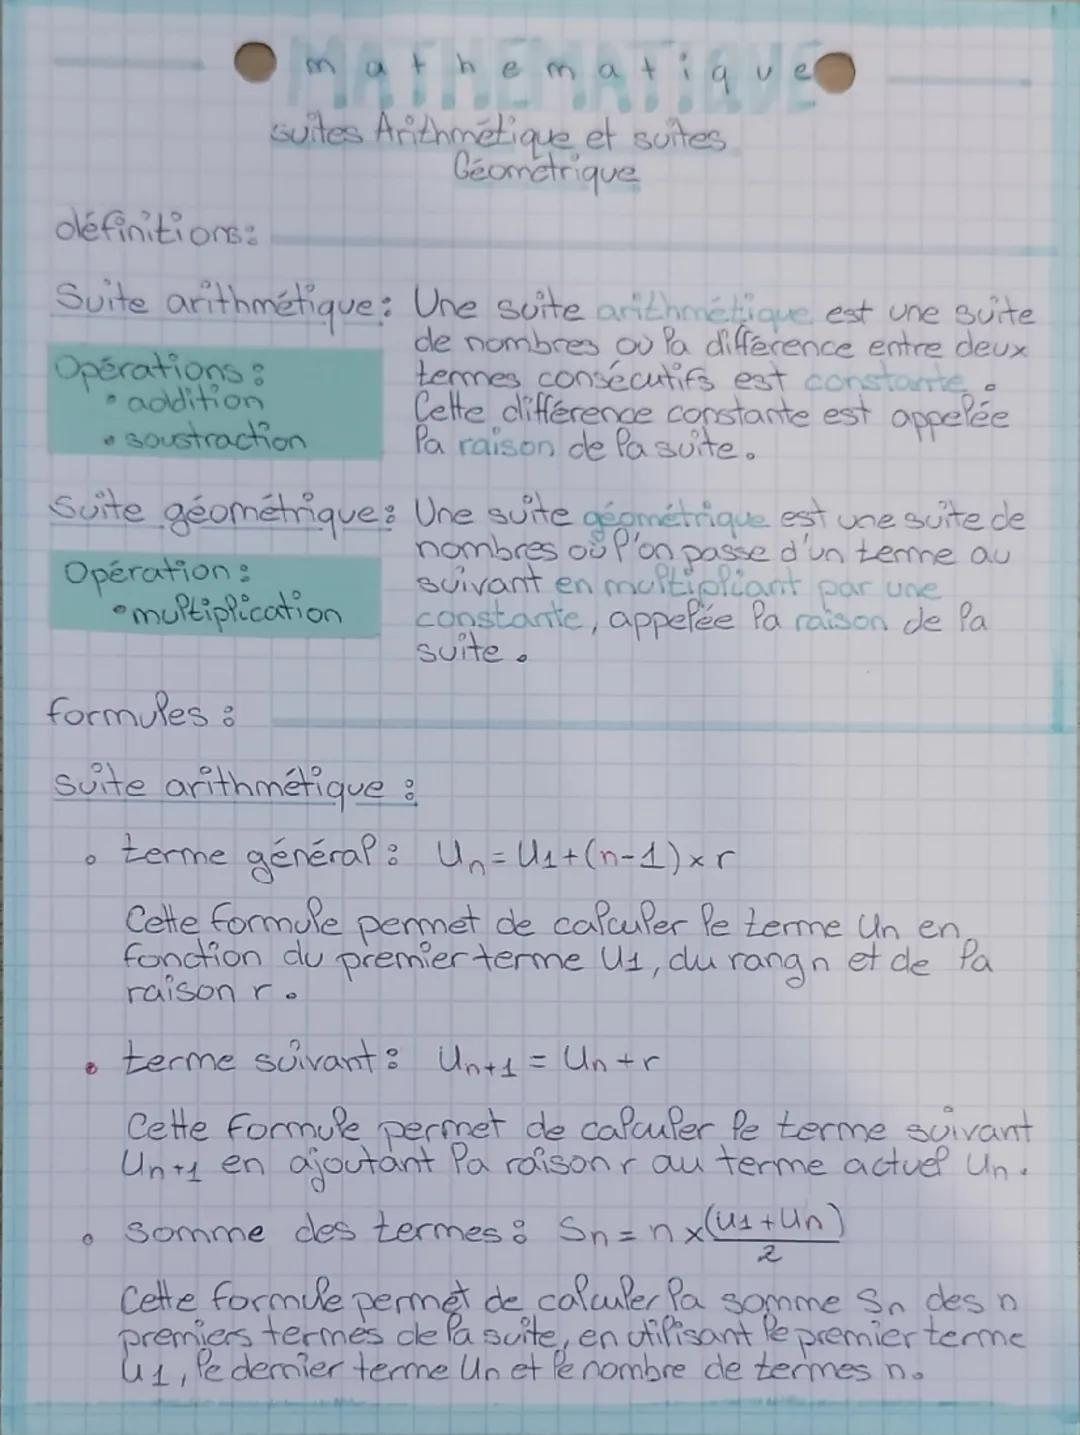 MATHEMATIQUE
mathematique
suites Arithmétique et suites
Géométrique
définitions:
Suite arithmétique: Une suite arithmétique est une suite
de nombres où la différence entre deux
Opérations:
termes consécutifs est constante.
• addition
Cette différence constante est appelée
• soustraction
la raison de la suite.
Suite géométrique: Une suite géométrique est une suite de
nombres où l'on passe d'un terme au
Opération:
suivant en multipliant par une
• multiplication
constante, appelée la raison de la
suite.
formules:
suite arithmétique:
• terme général: Un = U1+(n-1)×r
Cette formule permet de calculer le terme Un en
fonction du premier terme U1, du rang n et de la
raison r.
• terme suivant: Un+1 = Un +r
Cette formule permet de calculer le terme suivant
Un+1 en ajoutant la raison r au terme actuel Un.
• somme des termes: Sn = n×(U1+Un)/2
Cette formule permet de calculer la somme Sn des n
premiers termes de la suite, en utilisant le premier terme
U1, le dernier terme Un et le nombre de termes n.